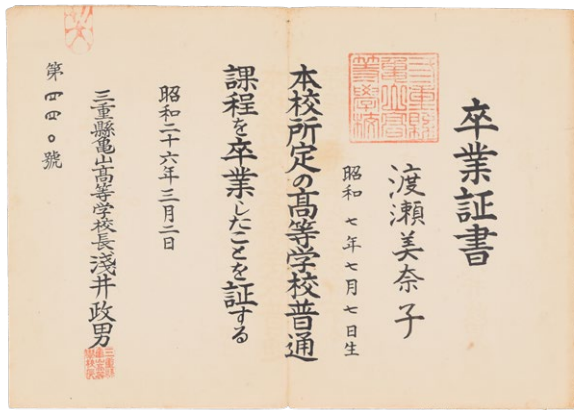 卒業証書
渡瀬美奈子
昭和七年七月七日生
本校所定の髙等学校普通
課程を卒業したことを証する
昭和二十六年三月二日
三重縣亀山髙等学校長淺井政男
第四四〇號